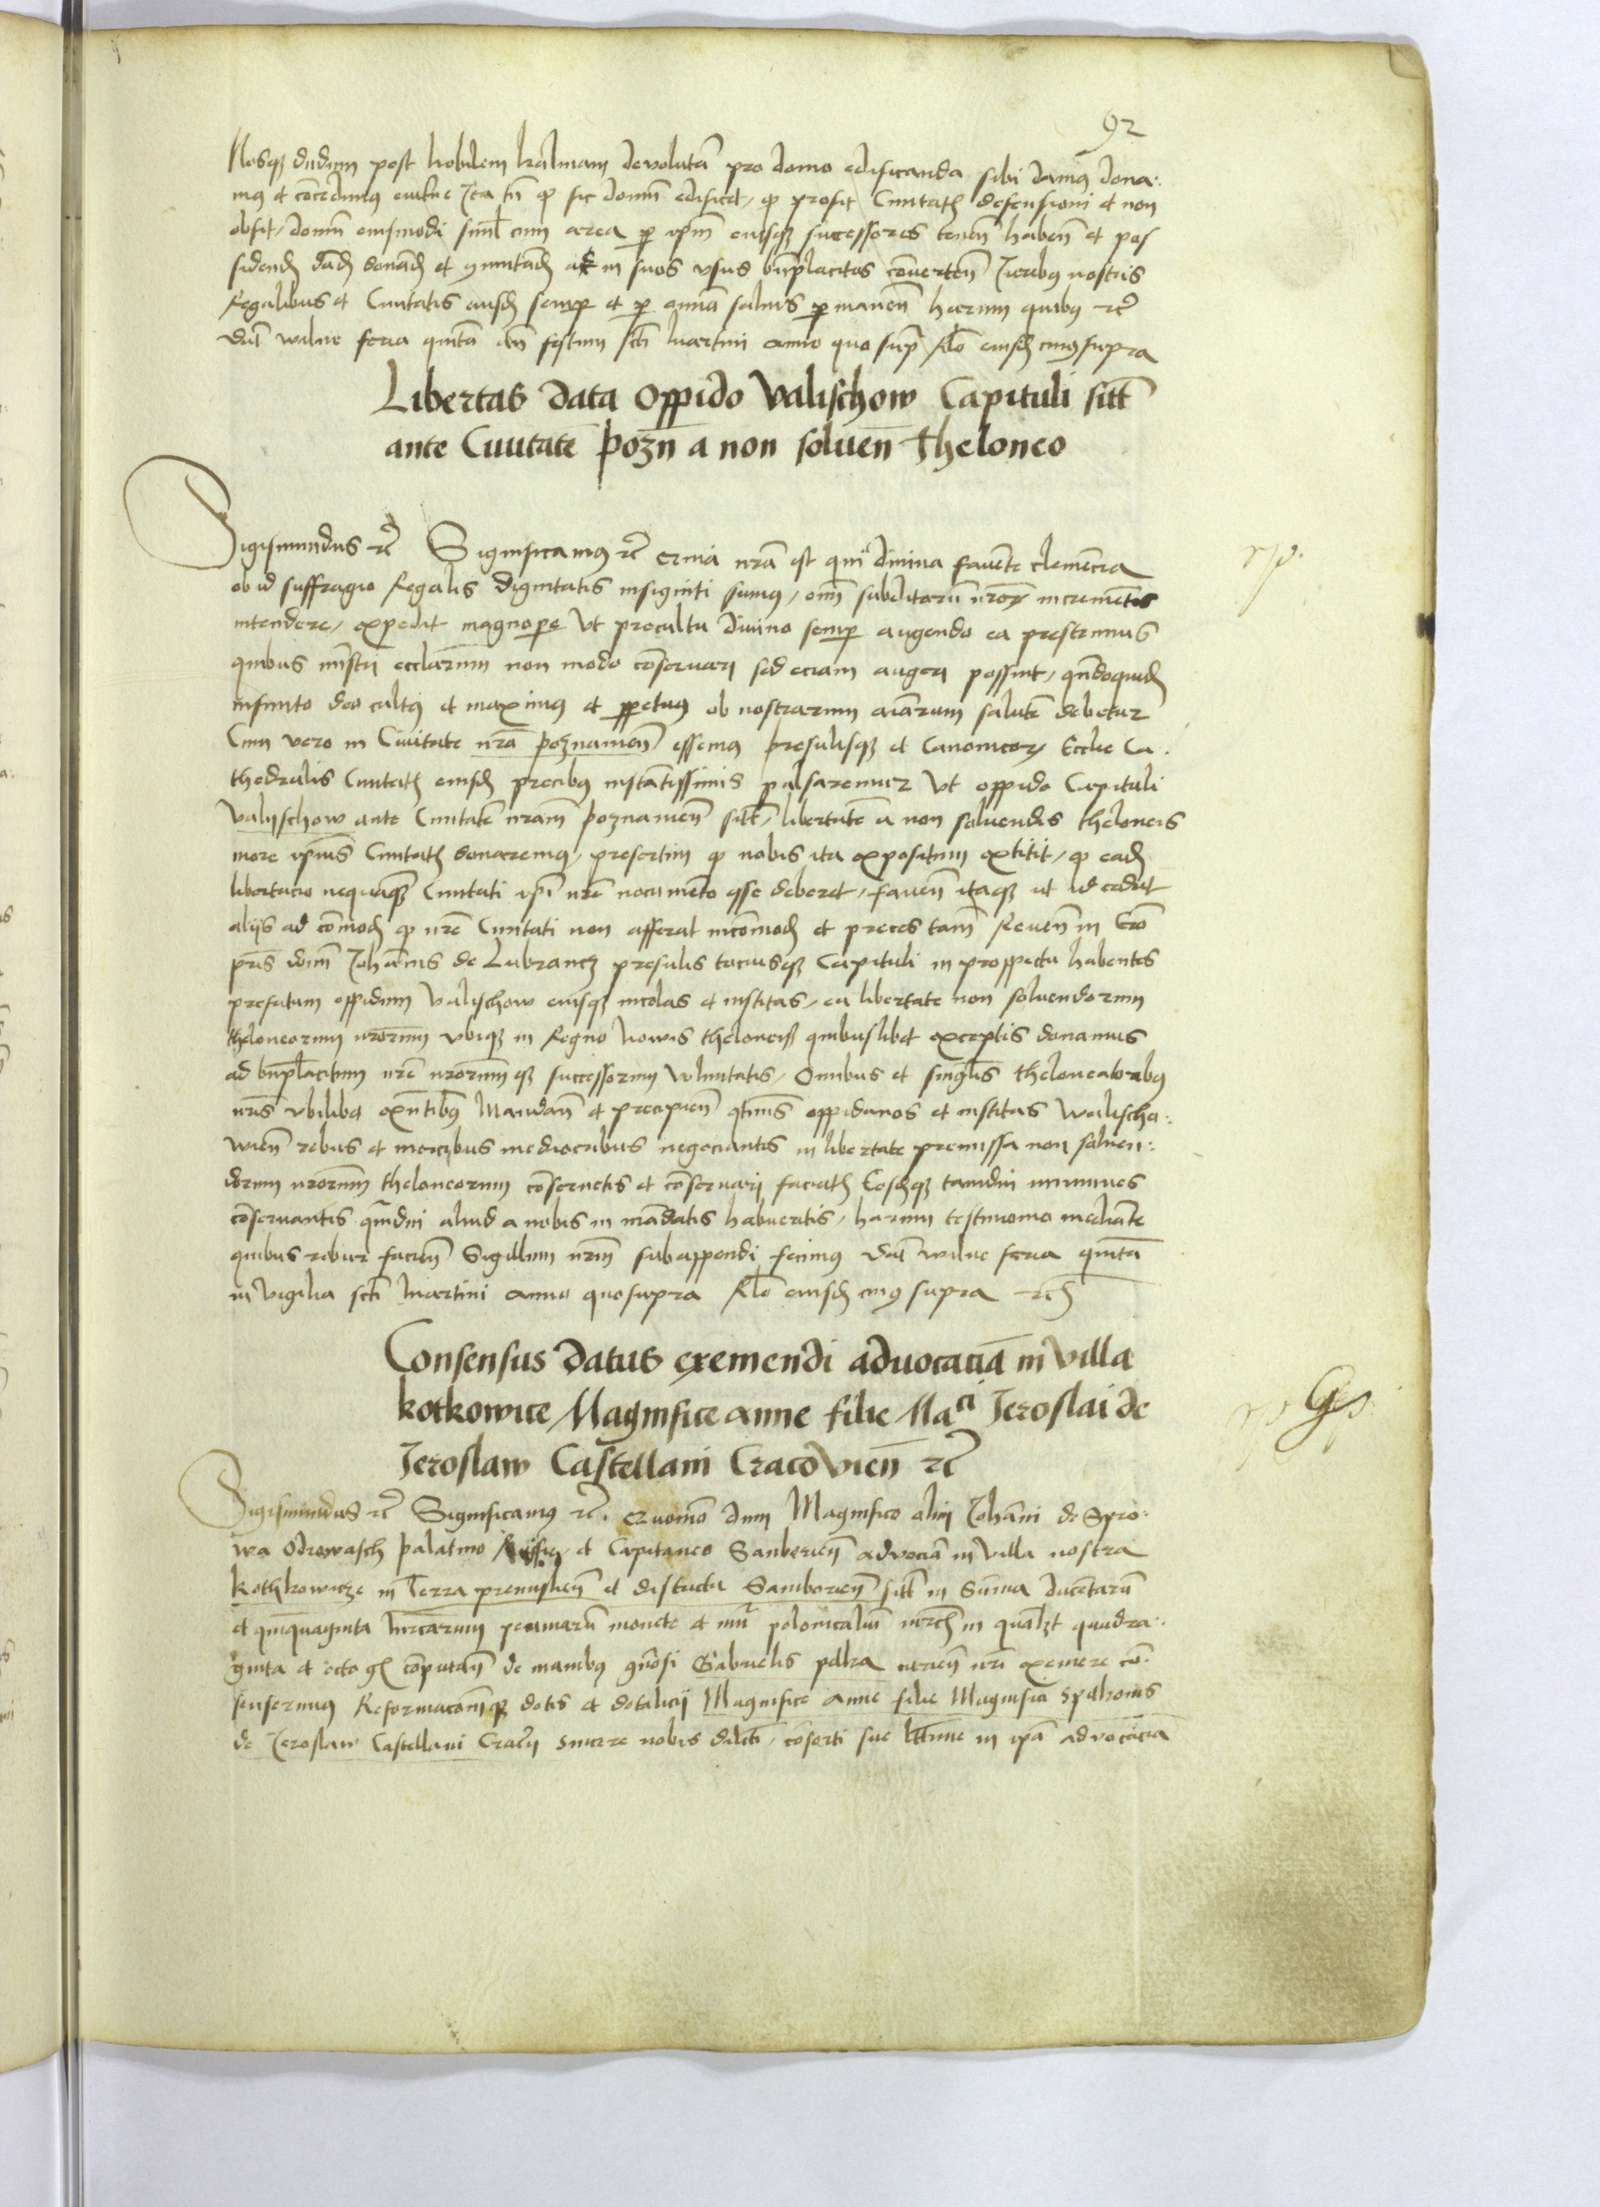 92
Nosq dudum post Nobilem halman devolutā pro domo edificanda sibi damus dona:
mus et concedimus Ita tn̄ q sic domū edificet, q prosit Civitatis defensioni et non
obsit, domū eiusmodi simul cum area p ipm̄ eiusq successores tenen̄ haben̄ et pos
siden̄ dan̄ donan̄ et ac in suos usus bn̄placitos converten̄ Juribus nostris
Regalibus et Civitatis eiusd semp et p omnia salvis p manen̄ harum quibus rc̄
dat̄ wilne feria quinta an̄ festum sct̄i Martini anno quo supr̄ Rlo eiusd cuius supra
Libertas data Oppido Valischow Capituli sitt̄
ante Civitatē pozn̄ a non soluen̄ theloneo
Sigismundus rc̄ Significamus rc̄ nr̄a est divina favente clemencia
ob id suffragio Regalis dignitatis insigniti sumus, om̄ subditorū nr̄or incrementis
intendere, expedit magnope Ut pro cultu divino semp augendo ea prestemus
quibus mīstri eccl̄arum non modo conservari sed eciam augeri possint, qn̄doquid
infinito deo cultus et maximus et ppetuus ob nostrarum aīarum salutē debetur
Cum vero in Civitate nr̄a poznanien̄ essemus presulisq et Canonicor Eccl̄ie Ca.
thedralis Civitatis eiusd precibus instantissimis pulsaremur Ut oppido Capituli
Valyschow ante Civitatē nr̄am poznanien̄ sitt̄, libertatē a non soluendis theloneis
more ipius Civitatis donaremus, presertim q nobis ita expositum extitit, q ead
libertacio nequaq Civitati ipi nr̄e nocumento esse deberet, faven̄ itaq ut id cedat
aliis ad comod q nr̄e Civitati non afferat incomod et preces tam̄ Reuen̄ in Cr̄o
pris dom̄ Johannis de Lubrancz presulis tociusq Capituli in prospectu habentes
prefatum oppidum Valischow eiusq incolas et institas, ea libertate non soluendorum
theloneorum nr̄orum ubiq in Regno novis theloneis quibuslibet exceptis donamus
ad bn̄placitum nr̄e nr̄orumq successorum voluntatis, Omnibus et singulis theloneatoribus
nr̄is ubilibet exn̄tibus Mandan̄ et precipien̄ qtinus oppidanos et institas Walischo:
wien̄ rebus et mercibus mediocribus negociantes in libertate premissa non soluen:
dorum nr̄orum theloneorum conservetis et conservari faciatis Eosdq tamdiu immunes
conservantes quādiu aliud a nobis in mandatis habueritis, harum testimonio mediante
quibus robur facien̄ Sigillum nr̄m subappendi fecimus dat̄ wilne feria quinta
in Vigilia sct̄i Martini anno quo supra Rlo eiusd cuius supra rc̄
Consensus datus exemendi advocaciā in Villa
kotkowice Magnifice anne filie Maci Jeroslai de
Jeroslaw Castellani Cracovien̄ rc̄
Sigismundus rc̄ Significamus rc̄. Magnifico olim Johāni de Spro:
wa Odrowasch palatino Russie et Capitaneo Samborien̄ advociā in Villa nostra
kothkowicze in Terra premislien̄ et districtu Samborien̄ sitt̄ in summa ducentarū
et quinquaginta mrcarum pecuniarū monete et nu polonicaliū in qualzt quadra:
ginta et octo gs computan̄ de manibus gn̄osi Gabrielis exemere con:
senserimus Reformaconēq dotis et dotalicii Magnifice anne filie Magnifici Spithonis
de Jeroslaw Castellani Crac̄ sincere nobis dilecti, consorti sue in ipa advocacia